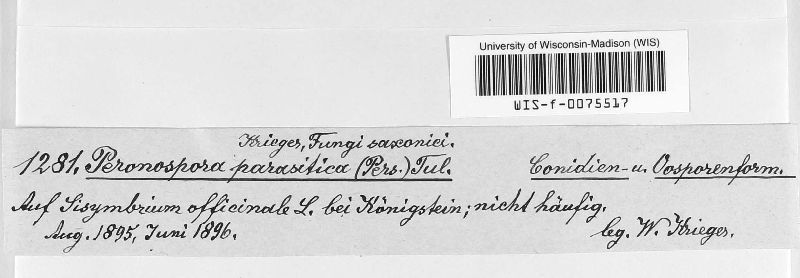 University of Wisconsin-Madison (WIS)
WIS-f-0075517
Krieger, Fungi saxonici.
1281. Peronospora parasitica (Pers.) Tul. Conidien- u. Oosporenform.
Auf Sisymbrium officinale L. bei Königstein; nicht häufig.
Aug. 1895, Juni 1896. leg. W. Krieger.